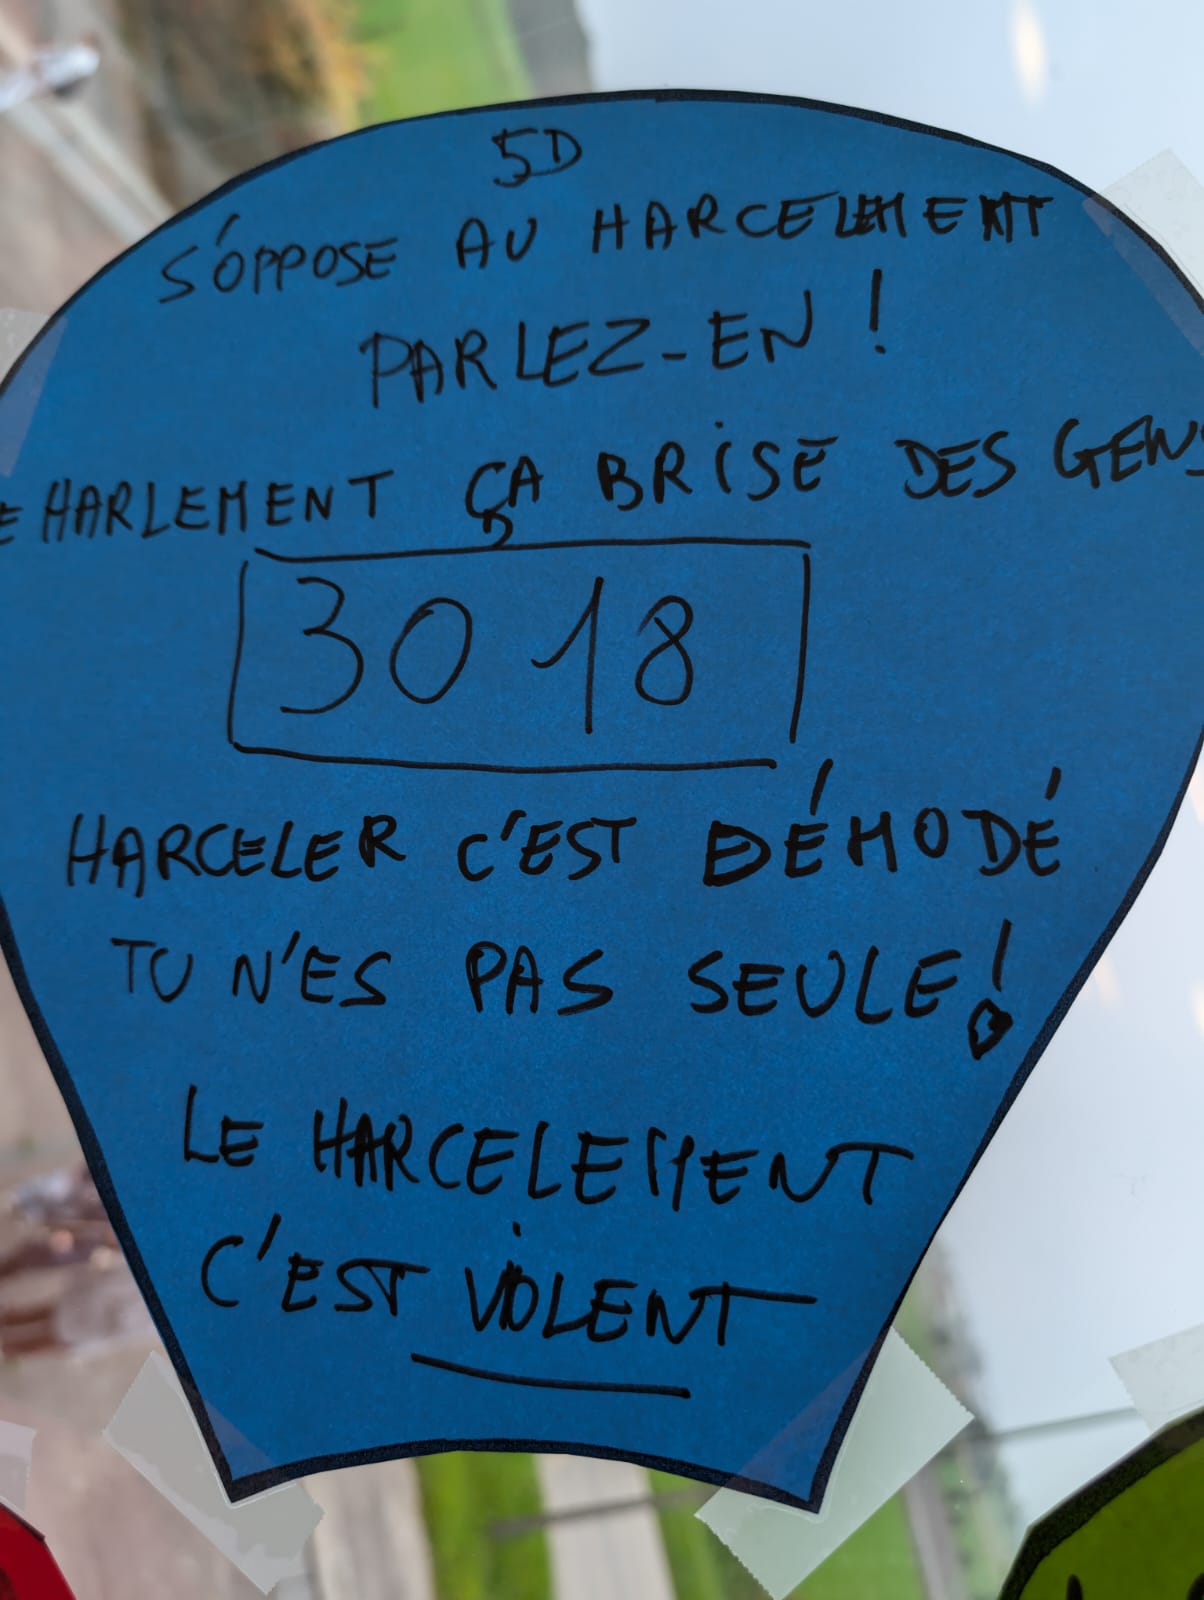 5D
S'OPPOSE AU HARCELEMENT
PARLEZ-EN !
E HARLEMENT ÇA BRISE DES GENS
3018
HARCELER C'EST DÉMODÉ
TU N'ES PAS SEULE !
LE HARCELEMENT
C'EST VIOLENT